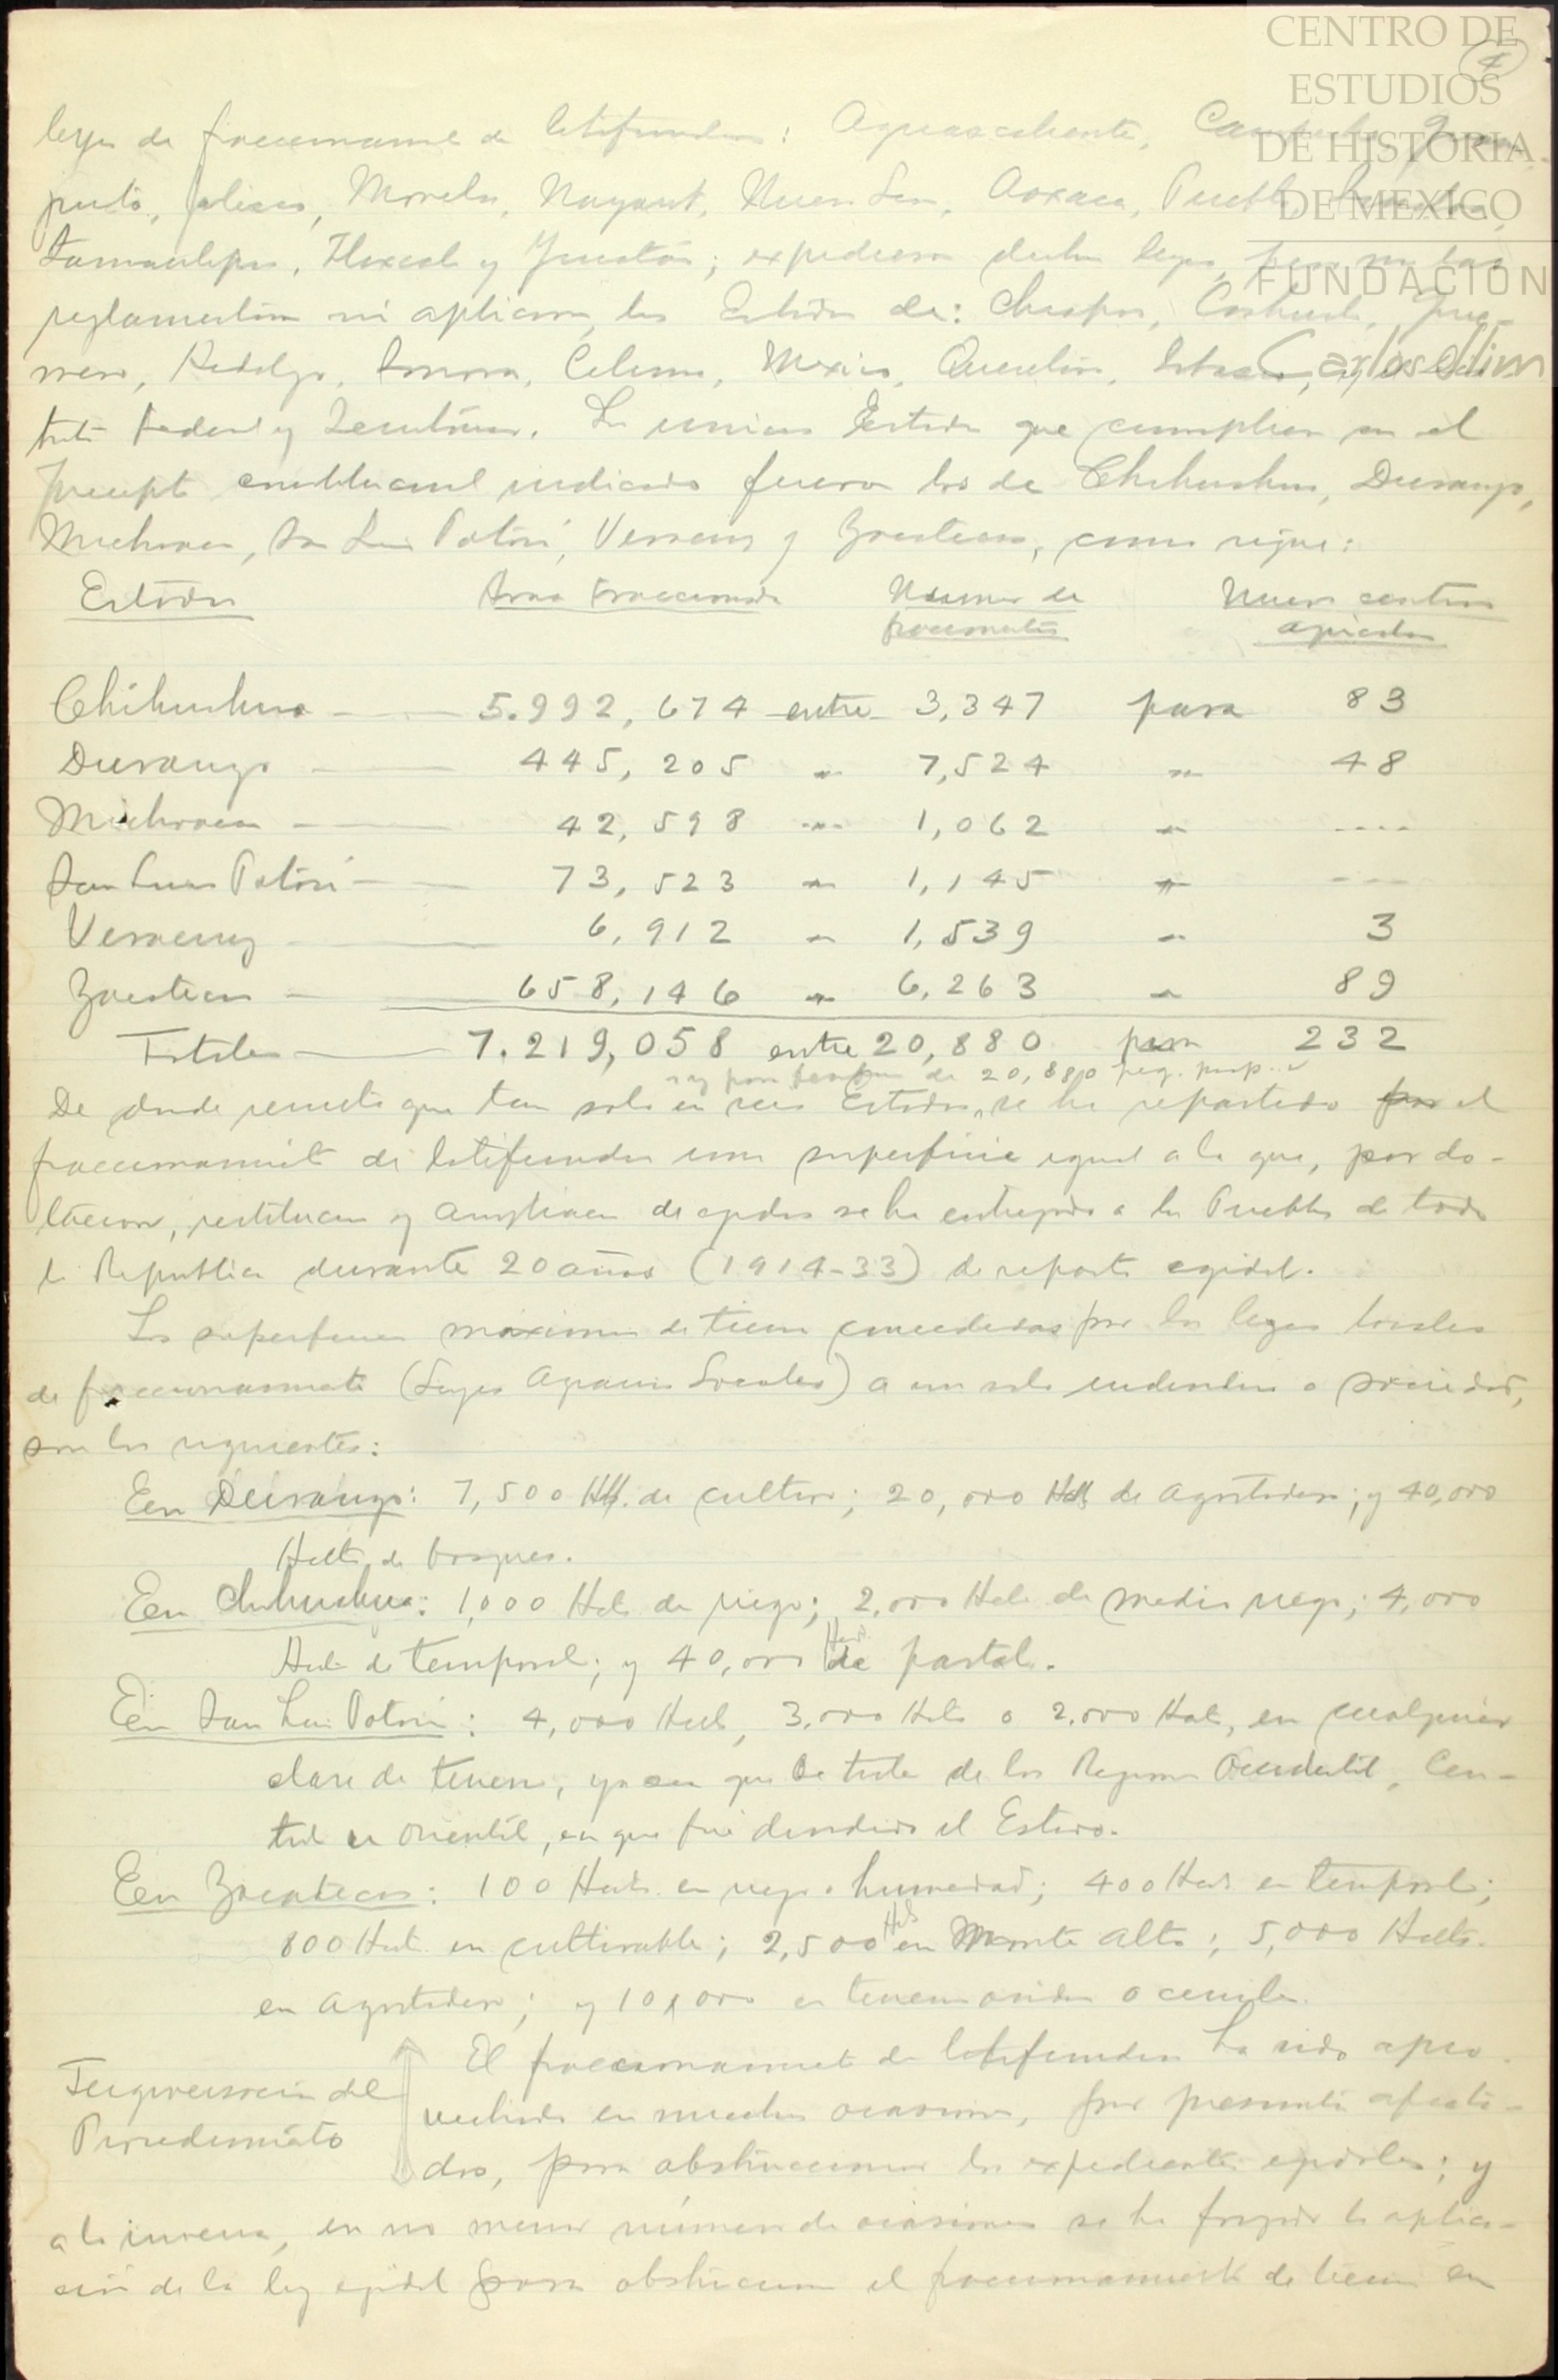 CENTRO DE
ESTUDIOS
DE HISTORIA
DE MEXICO
FUNDACION
Carlos Slim
4
leyes de fraccionamiento de latifundios: Aguascalientes, Campeche, Guana-
juato, Jalisco, Morelos, Nayarit, Nuevo Leon, Oaxaca, Puebla, Sinaloa,
Tamaulipas, Tlaxcala y Yucatán; expidieron dichas leyes, pero no las
reglamentaron ni aplicaron, los Estados de: Chiapas, Coahuila, Gue-
rrero, Hidalgo, Sonora, Colima, Mexico, Queretaro, Tabasco, y el Dis-
trito Federal y Territorios. Los unicos Estados que cumplieron con el
precepto constitucional indicado fueron los de Chihuahua, Durango,
Michoacan, San Luis Potosí, Veracruz y Zacatecas, como sigue:
Estados Area Fraccionada Numero de Nuevos centros
fraccionistas agricolas
Chihuahua — 5.992,674 entre 3,347 para 83
Durango — 445,205 " 7,524 " 48
Michoacan — 42,598 " 1,062 " ----
San Luis Potosí — 73,523 " 1,145 " ---
Veracruz — 6,912 " 1,539 " 3
Zacatecas — 658,146 " 6,263 " 89
Totales — 7.219,058 entre 20,880 para 232
de 20,880 peq. prop.
De donde resulta que tan solo en seis Estados, se ha repartido por el
fraccionamiento de latifundios una superficie igual a la que, por do-
tacion, restitucion y ampliacion de ejidos se ha entregado a los Pueblos de toda
la Republica durante 20 años (1914-33) de reparto ejidal.
Las superficies máximas de tierra concedidas por las leyes locales
de fraccionamiento (Leyes Agrarias Locales) a un solo individuo o sociedad,
son las siguientes:
En Durango: 7,500 Hts. de cultivo; 20,000 Hts de agostadero; y 40,000
Hects. de bosques.
En Chihuahua: 1,000 Hets. de riego; 2,000 Hets. de medio riego; 4,000
Hets. de temporal; y 40,000 Hets. de pastal.
En San Luis Potosí: 4,000 Hects, 3,000 Hets. o 2,000 Hets, en cualquier
clase de terreno, ya sea que se trate de las Regiones Occidental, Cen-
tral u Oriental, en que fué dividido el Estado.
En Zacatecas: 100 Hects. en riego o humedad; 400 Hets. en temporal;
800 Hects. en cultivable; 2,500 Hets en Monte alto; 5,000 Hects.
en agostadero; y 10,000 en terrenos aridos o cerriles.
Tergiversación del
Procedimiento
El fraccionamiento de latifundios ha sido apro-
vechado en muchas ocasiones, por presuntos afecta-
dos, para obstruccionar los expedientes ejidales; y
a la inversa, en no menor número de ocasiones se ha forzado la aplica-
ción de la ley ejidal para obstruccionar el fraccionamiento de tierras en